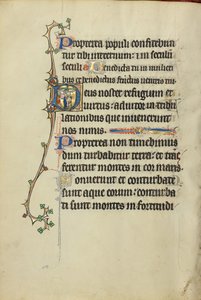 Propterea populi confitebun
tur tibi in eternum: in seculum
seculi. Benedicta tu in mulieri
bus et benedictus fructus ventris tui.
Deus noster refugium et
virtus: adiutor in tribu
lationibus que invenerunt
nos nimis.
Propterea non timebimus
dum turbabitur terra: et tras
ferentur montes in cor maris.
Sonuerunt et turbate
sunt aque eorum: conturba
ti sunt montes in fortitudi